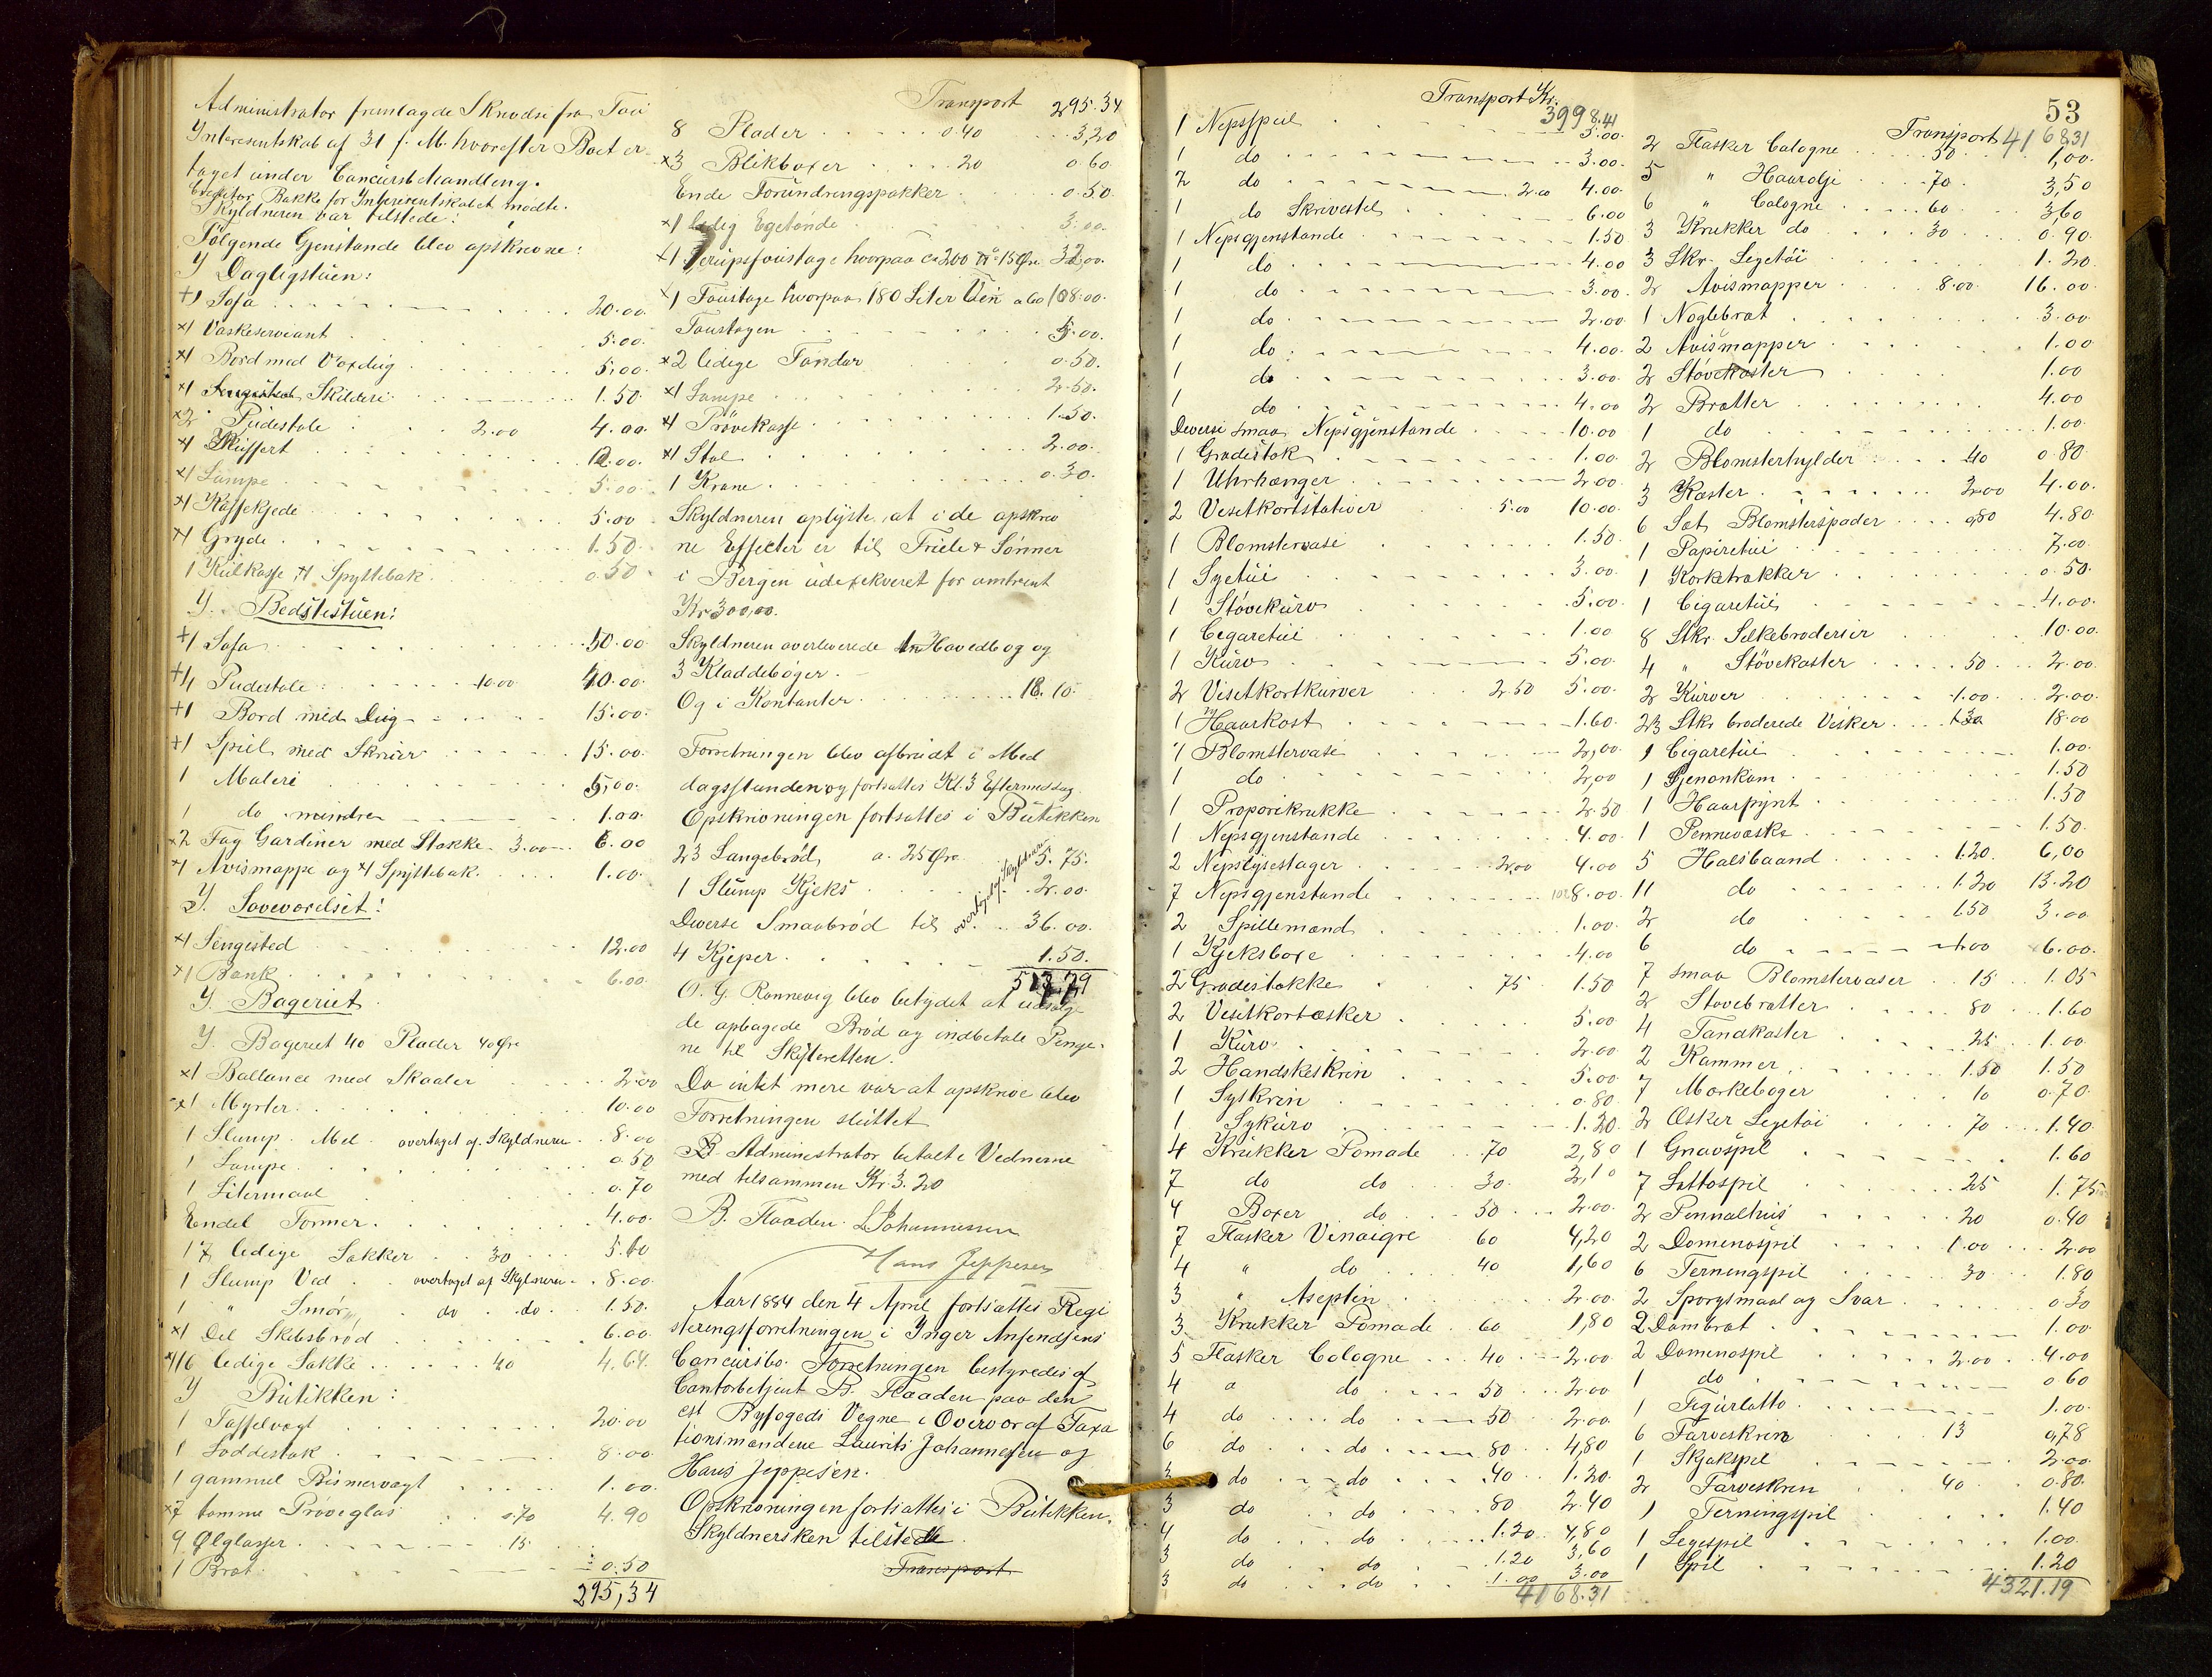 Administrator fremlagde Skrivelse fra
Interesentskab af 31 f. M. hvorefter Boet er
taget under Concursbehandling.
Creditor Bakke for Interesentskabet mødte.
Skyldneren var tilstede:
Følgende Gjenstande blev opskrevne:
I Dagligstuen:
+1 Sofa 20.00
x1 Vaskeservant 5.00
x1 Bord med Voxdug 5,00
x1 Skilderi 1.50
x2 Pidestale 2.00 4.00
x1 Kuffert
x1 Lampe 5.00
x1 Kaffekjedel 5.00
x1 Gryde 1.50
1 Kulkasse, x1 Spyttebak 0.50
I Bedstestuen:
+1 Sofa 50.00
+4 Pidestale 10.00 40.00
+1 Bord med Dug 15.00
+1 Speil med Skruer 15.00
1 Maleri 5,00
1 do mindre 1.00
x2 Fag Gardiner med Stokke 3.00 6.00
x1 Avismappe og x1 Spyttebak 1.00
I Soveværelset:
x1 Sengested 12.00
x1 Bænk 6.00
I Bageriet
I Bageriet 40 Plader 40 Øre
x1 Ballance med Skaaler 2.00
x1 Myrter 10.00
1 Slump Mel overtaget af Skyldneren 8.00
1 Lampe 0.50
1 Litermaal 0.70
Endel Former 4.00
17 ledige Sække 30 5.10
1 Slump Ved overtaget af Skyldneren 8.00
1 " Smør do do 1.50
x1 Del Skibsbrød 6.00
x116 ledige Sække 40 4.64
I Butikken:
1 Taffelvægt 20.00
1 Loddestok 8.00
1 gammel Bismervægt 1.00
x7 tomme Prøveglas 0.70 4.90
9 Ølglasser 15
1 Bræt 0.50
295,34
Transport 295.34
8 Plader 0.40 3,20
x3 Blikboxer 20 0.60
Ende Forundringspakker 0.50
x1 ledig Egetønde 3.00
x1 Sirupsfoustage hvorpaa ca 200 ℔ a 15 Øre 32.00
x1 Foustage hvorpaa 180 Liter Vin a 60 108.00
Foustagen 5.00
x2 ledige Tønder 0.50
x1 Lampe 2.50
x1 Prøvekasse 1.50
x1 Stol 2.00
1 Krane 0.30
Skyldneren oplyste, at i de opskrev
ne Effecter er til Friele & Sønner
i Bergen udexekveret for omtrent
Kr 300,00.
Skyldneren overleverede 1n Hovedbog og
3 Kladdebøger.
Og i Kontanter 18.10
Forretningen blev afbrudt i Med
dagsstunden og fortsattes Kl. 3 Eftermiddag.
Opskrivningen fortsattes i Butikken
23 Langebrød a 25 Øre 5.75
1 Slump Kjeks 2.00
overtaget af Skyldneren
Diverse Smaabrød til 36.00
4 Kjeper 1.50
513.79
O. G. Rønnevig blev betydet at udsælge
de optagede Brød og indbetale Penge-
ne til Skifteretten.
Da intet mere var at opskrive blev
Forretningen sluttet
Administrator betalte Vidnerne
med tilsammen Kr. 3.20
B. Flaaden. L Johannessen
Hans Jeppesen
Aar 1884 den 4 April fortsattes Regi
streringsforretningen i Inger Ansendsens
Concursbo. Forretningen bestyredes af
Contorbetjent B. Flaaden paa den
cst Byfogeds Vegne i Overvær af Taxa
tionsmændene Laurits Johannesen og
Hans Jeppesen.
Opskrivningen fortsattes i Butikken.
Skyldnersken tilstede
Transport
Transport Kr. 3998.41
1 Nepsspeil 5.00
1 do 3.00
2 do 2.00 4.00
1 do Skrivestel 6.00
1 Nepsgjenstande 1.50
1 do 4.00
1 do 3.00
1 do 2.00
1 do 4.00
1 do 3.00
1 do 4.00
Diverse smaa Nepsgjenstande 10.00
1 Gradestok 1.00
1 Uhrhænger 2.00
2 Visitkortstativer 5.00 10.00
1 Blomstervase 1.50
1 Syetui 3.00
1 Støvekurv 5.00
1 Cigaretui 1.00
1 Kurv 5.00
2 Visitkortkurver 2.50 5.00
1 Haarkost 1.60
1 Blomstervase 2,00
1 do 2,00
1 Proporikrukke 2.50
1 Nepsgjenstande 4.00
2 Nepslysestager 2.00 4.00
7 Nepsgjenstande 8.00
2 Spillemænd 1.00
1 Kjeksboxe 4.00
2 Gradestokke 75 1.50
2 Visitkortæsker 5.00
1 Kurv 2.00
2 Handskeskrin 5.00
1 Syskrin 0.80
1 Sykurv 1.20
4 Krukker Pomade 70 2,80
7 do do 30 2,10
4 Boxer do 50 2.00
7 Flasker Vinaigre 60 4,20
4 " do 40 1,60
3 " Aseptin 2.00
3 Krukker Pomade 60 1,80
5 Flasker Cologne 40 2.00
4 a do 50 2.00
4 do do 50 2.00
6 do do 80 4,80
3 do do 40 1.20
3 do do 80 2.40
4 do do 1.20 4,80
3 do do 1.20 3,60
3 do do 1.00 3.00
4168.31
53
Transport 4168.31
2 Flasker Cologne 50 1,00
5 " Haarolje 70 3,50
6 " Cologne 60 3.60
3 Krukker do 30 0.90
3 Skr. Legetøi 1.20
2 Avismapper 8.00 16.00
1 Nøglebræt 3.00
2 Avismapper 1.00
2 Støvekoster 1.00
2 Bretter 4.00
1 do 1.00
2 Blomsterhylder 40 0.80
3 Koster 2.00 4.00
6 Sæt Blomsterspader 0.80 4.80
1 Papiretui 7.00
1 Korketrækker 0.50
1 Cigaretui 4.00
8 Stkr. Silkebroderier 10.00
4 " Støvekoster 50 2.00
2 Kurver 1.00 2.00
23 Stkr broderede Visker 18.00
1 Cigaretui 1.00
1 Gjenonkam 1.50
1 Haarpynt 1.50
1 Pennevaske 1.50
5 Halsbaand 1.20 6,00
11 do 1.20 13.20
2 do 1.50 3.00
6 do 1.00 6.00
7 smaa Blomstervaser 15 1.05
2 Støvebretter 80 1.60
4 Tandkoster 25 1.00
2 Kammer 1.50 1.50
7 Mærkebøger 10 0.70
2 Æsker Legetøi 70 1.40
1 Gnavspil 1.60
7 Lottospil 25 1.75
2 Pennalhuis 20 0.40
2 Domenospil 1.00 2.00
6 Terningspil 30 1.80
2 Spørgsmaal og Svar 0.30
2 Dambræt 1.00
2 Domenospil 2.00 4.00
1 do 0.60
1 Figurlotto 1.00
6 Farveskrin 13 0,78
1 Skjakspil 2.00
2 Farveskrin 40 0.80
1 Terningspil 1.40
1 Legespil 1.00
1 Spil 1.20
4321.19